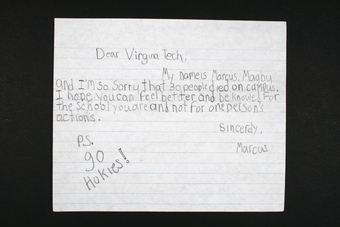 Dear Virgina Tech,
My name is Marcus. Magby
and I'm so sorry that 30 people died on campus.
I hope you can feel better and be known for
the school you are and not for one person's
actions.
Sincerely,
Marcus
P.S.
go
Hokies!